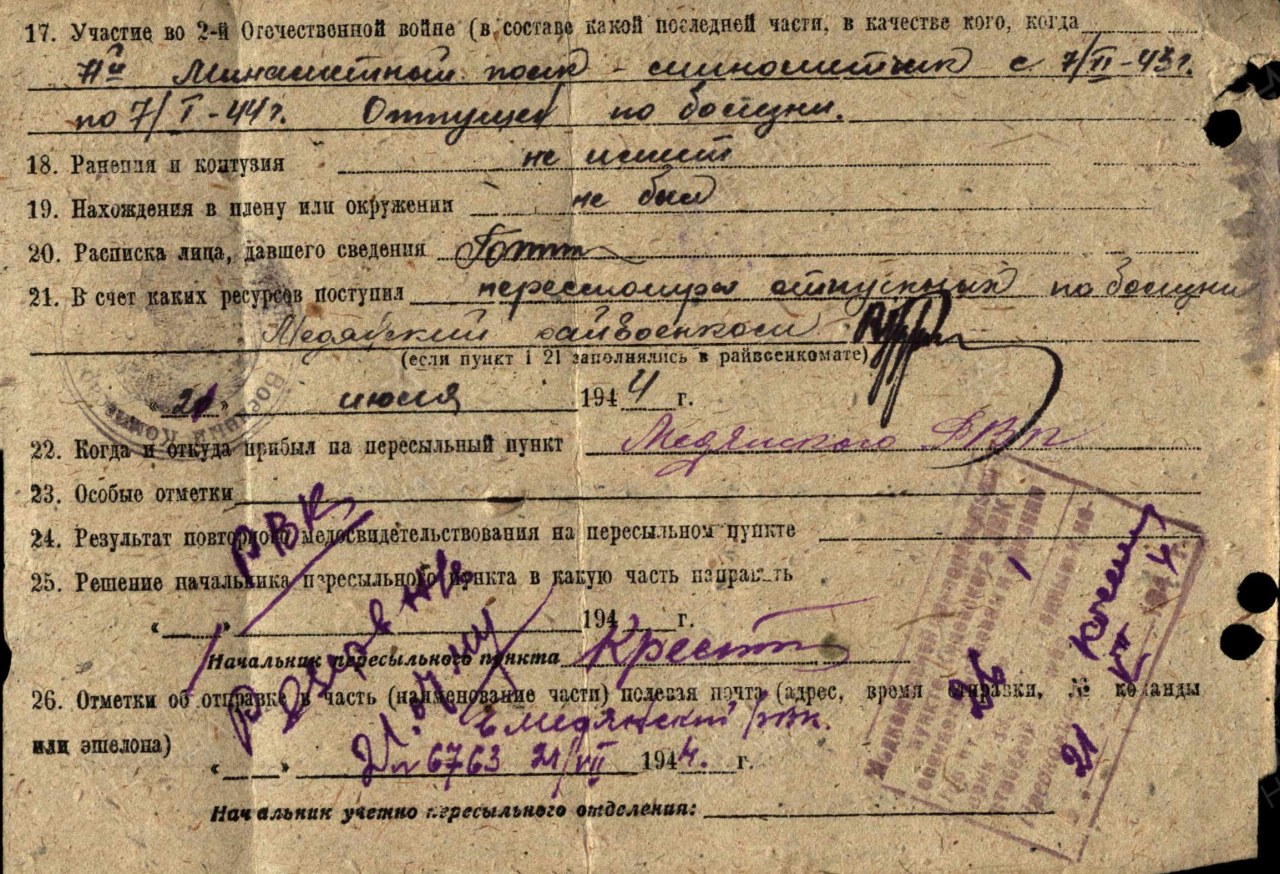 17. Участие во 2-й Отечественной войне (в составе какой последней части, в качестве кого, когда
Минометный полк - минометчик с 7/II-43г.
по 7/I-44г. Отпущен по болезни.
18. Ранения и контузия не имеет
19. Нахождения в плену или окружении не был
20. Расписка лица, давшего сведения
21. В счет каких ресурсов поступил отпускных по болезни
Медянский райвоенком
(если пункт 1 21 заполнялись в райвоенкомате)
„21" июля 1944 г.
22. Когда и откуда прибыл на пересыльный пункт Медянского РВК
23. Особые отметки
РВК
24. Результат повторного медосвидетельствования на пересыльном пункте
25. Решение начальника пересыльного пункта в какую часть направить
„ " 194 г.
Начальник пересыльного пункта
26. Отметки об отправке в часть (наименование части) полевая почта (адрес, время отправки, № команды
или эшелона) в Медянский РВК.
„ " 6763 21/VII 1944. г.
Начальник учетно пересыльного отделения:
Военный Комис
26
21 VII 1944 г.